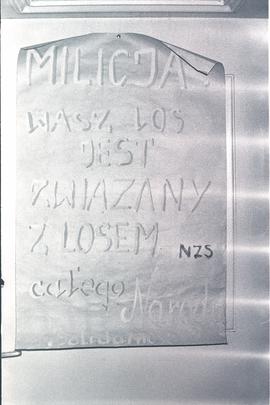 MILICJA
WASZ LOS
JEST
ZWIĄZANY
Z LOSEM
NZS
całego Narodu